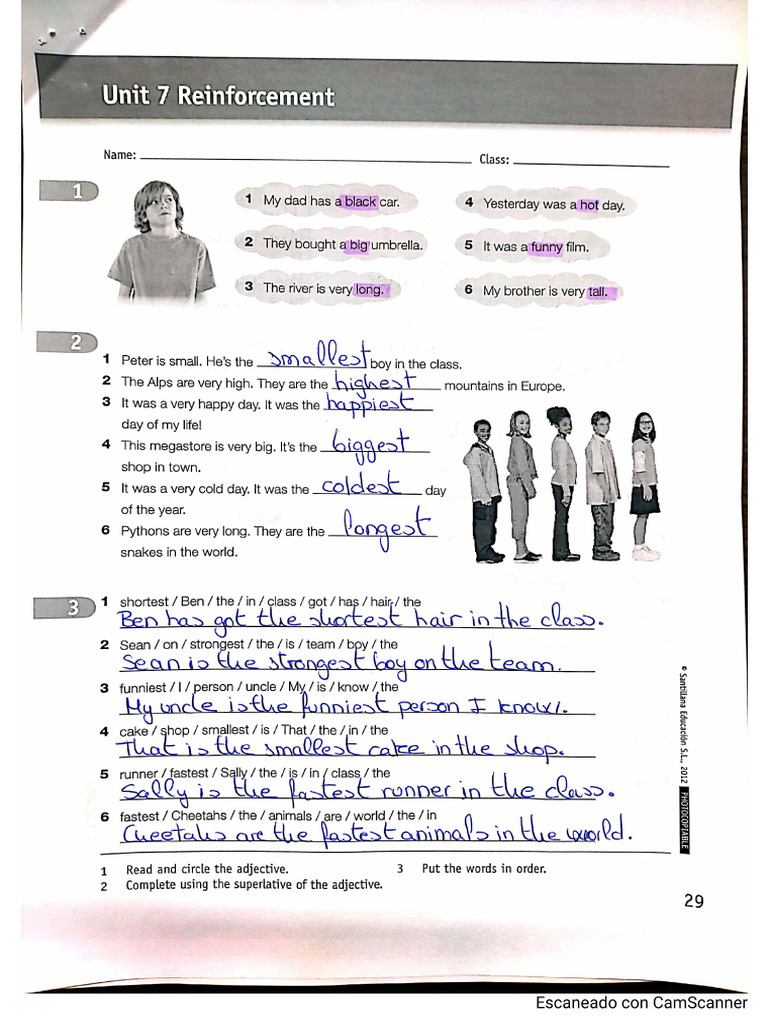 Unit 7 Reinforcement
Name:
Class:
1
1 My dad has a black car.
2 They bought a big umbrella.
3 The river is very long.
4 Yesterday was a hot day.
5 It was a funny film.
6 My brother is very tall.
2
1 Peter is small. He's the smallest boy in the class.
2 The Alps are very high. They are the highest mountains in Europe.
3 It was a very happy day. It was the happiest
day of my life!
4 This megastore is very big. It's the biggest
shop in town.
5 It was a very cold day. It was the coldest day
of the year.
6 Pythons are very long. They are the longest
snakes in the world.
3
1 shortest / Ben / the / in / class / got / has / hair / the
Ben has got the shortest hair in the class.
2 Sean / on / strongest / the / is / team / boy / the
Sean is the strongest boy on the team.
3 funniest / I / person / uncle / My / is / know / the
My uncle is the funniest person I know.
4 cake / shop / smallest / is / That / the / in / the
That is the smallest cake in the shop.
5 runner / fastest / Sally / the / is / in / class / the
Sally is the fastest runner in the class.
6 fastest / Cheetahs / the / animals / are / world / the / in
Cheetahs are the fastest animals in the world.
1 Read and circle the adjective.
2 Complete using the superlative of the adjective.
3 Put the words in order.
© Santillana Educación S.L., 2012 PHOTOCOPIABLE
29
Escaneado con CamScanner